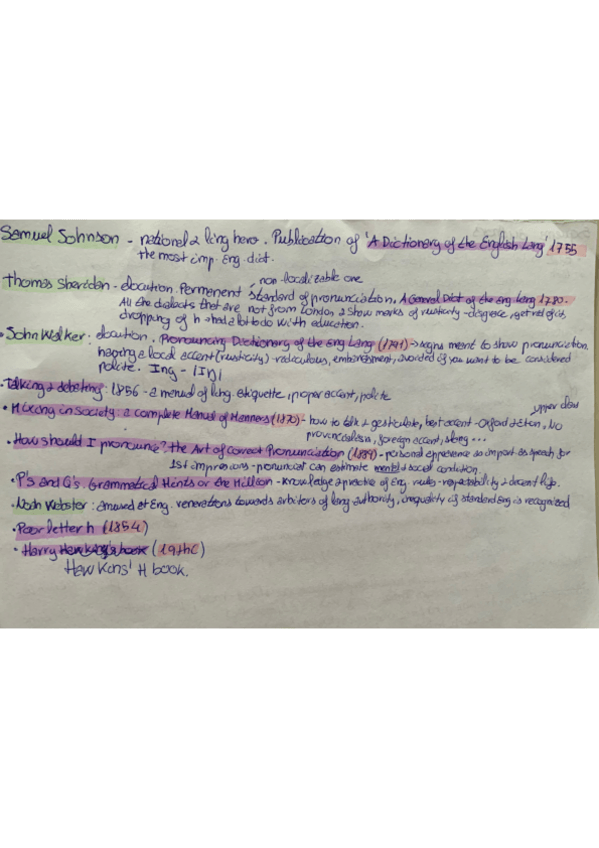 Samuel Johnson - national & ling hero. Publication of 'A Dictionary of the English Lang' 1755
the most imp. Eng. dict.
non-localizable one
Thomas Sheridan - elocution. Permenent standard of pronunciation. A General Dict of the Eng Lang 1780.
All the dialects that are not from London & show marks of rusticity - disgrace, get rid of it,
dropping of h → had a lot to do with education.
John Walker: elocution. Pronouncing Dictionary of the Eng Lang (1791) → signs ment to show pronunciation.
having a local accent (rusticity) - rediculous, embarrassment, avoided if you want to be considered
polite. Ing - |Iŋ|
• Talking & debating: 1856 - a manual of ling. etiquette, proper accent, polite
upper class
• Mixing in society: a complete Manual of Manners (1870) - how to talk & gesticulate, best accent - Oxford, No
provincialism, foreign accent, slang ...
• How should I pronounce? the Art of Correct Pronunciation (1889) - personal appearance as import as speech for
1st impressions - pronunciat can estimate mental & social condition.
• P's and Q's. Grammatical Hints or the Million - knowledge & practice of Eng. rules - respectability & decent life.
• Noah Webster: amused at Eng. venerations towards arbitors of lang authority, inequality if standard eng is recognized
• Poor letter h (1854)
• Harry Hawking's book (19thC)
Hawkins' H book.